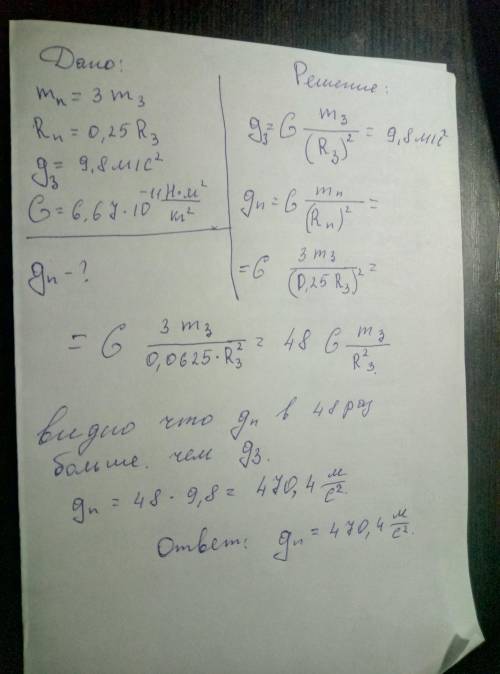 Дано:
mп = 3 mз
Rп = 0,25 Rз
gз = 9,8 м/с²
G = 6,67·10⁻¹¹ Н·м²/кг²
gп - ?
Решение:
gз = G mз/(Rз)² = 9,8 м/с²
gп = G mп/(Rп)² =
= G 3 mз/(0,25 Rз)² =
= G 3 mз/0,0625·Rз² = 48 G mз/Rз².
видно что gп в 48 раз
больше. чем gз.
gп = 48 · 9,8 = 470,4 м/с².
Ответ: gп = 470,4 м/с².